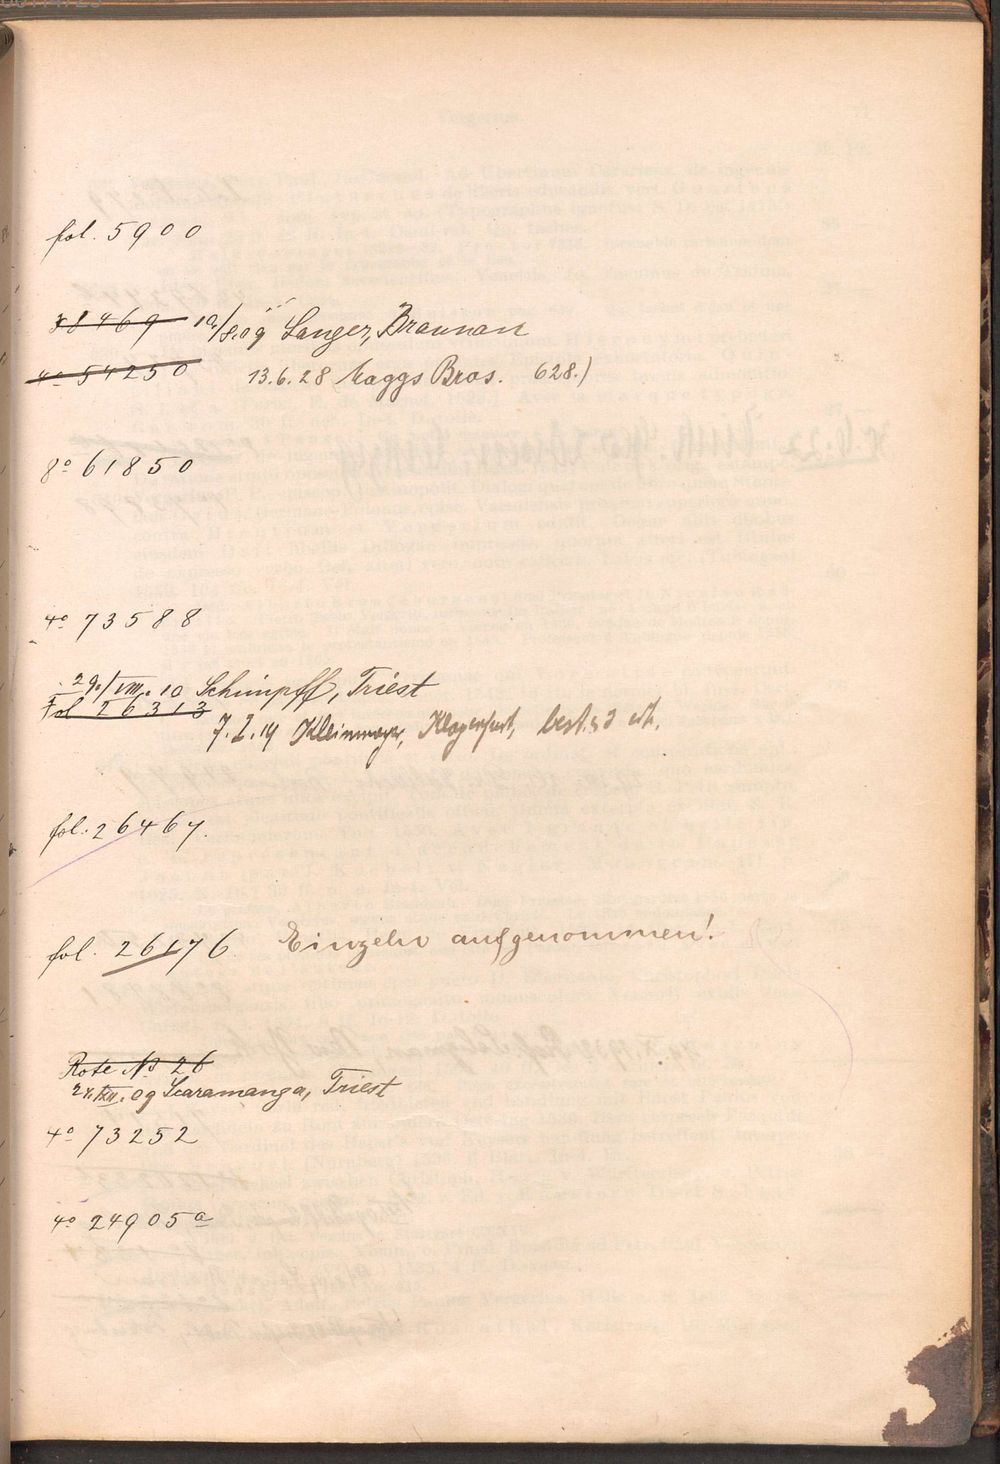 fol. 5900
~~38469~~ 10/8.09 Langer, Braunau
~~4° 54250~~ 13.6.28 Maggs Bros. 628.)
8° 61850
4° 73588
29./VIII. 10 Schimpff, Triest
~~Fol 26313~~
7.I.14 Kleinmayr, Klagenfurt, best.
fol. 26467.
fol. 26176. Einzeln aufgenommen!
~~Rote No 26~~
09 Scaramanga, Triest
4° 73252
4° 24905a